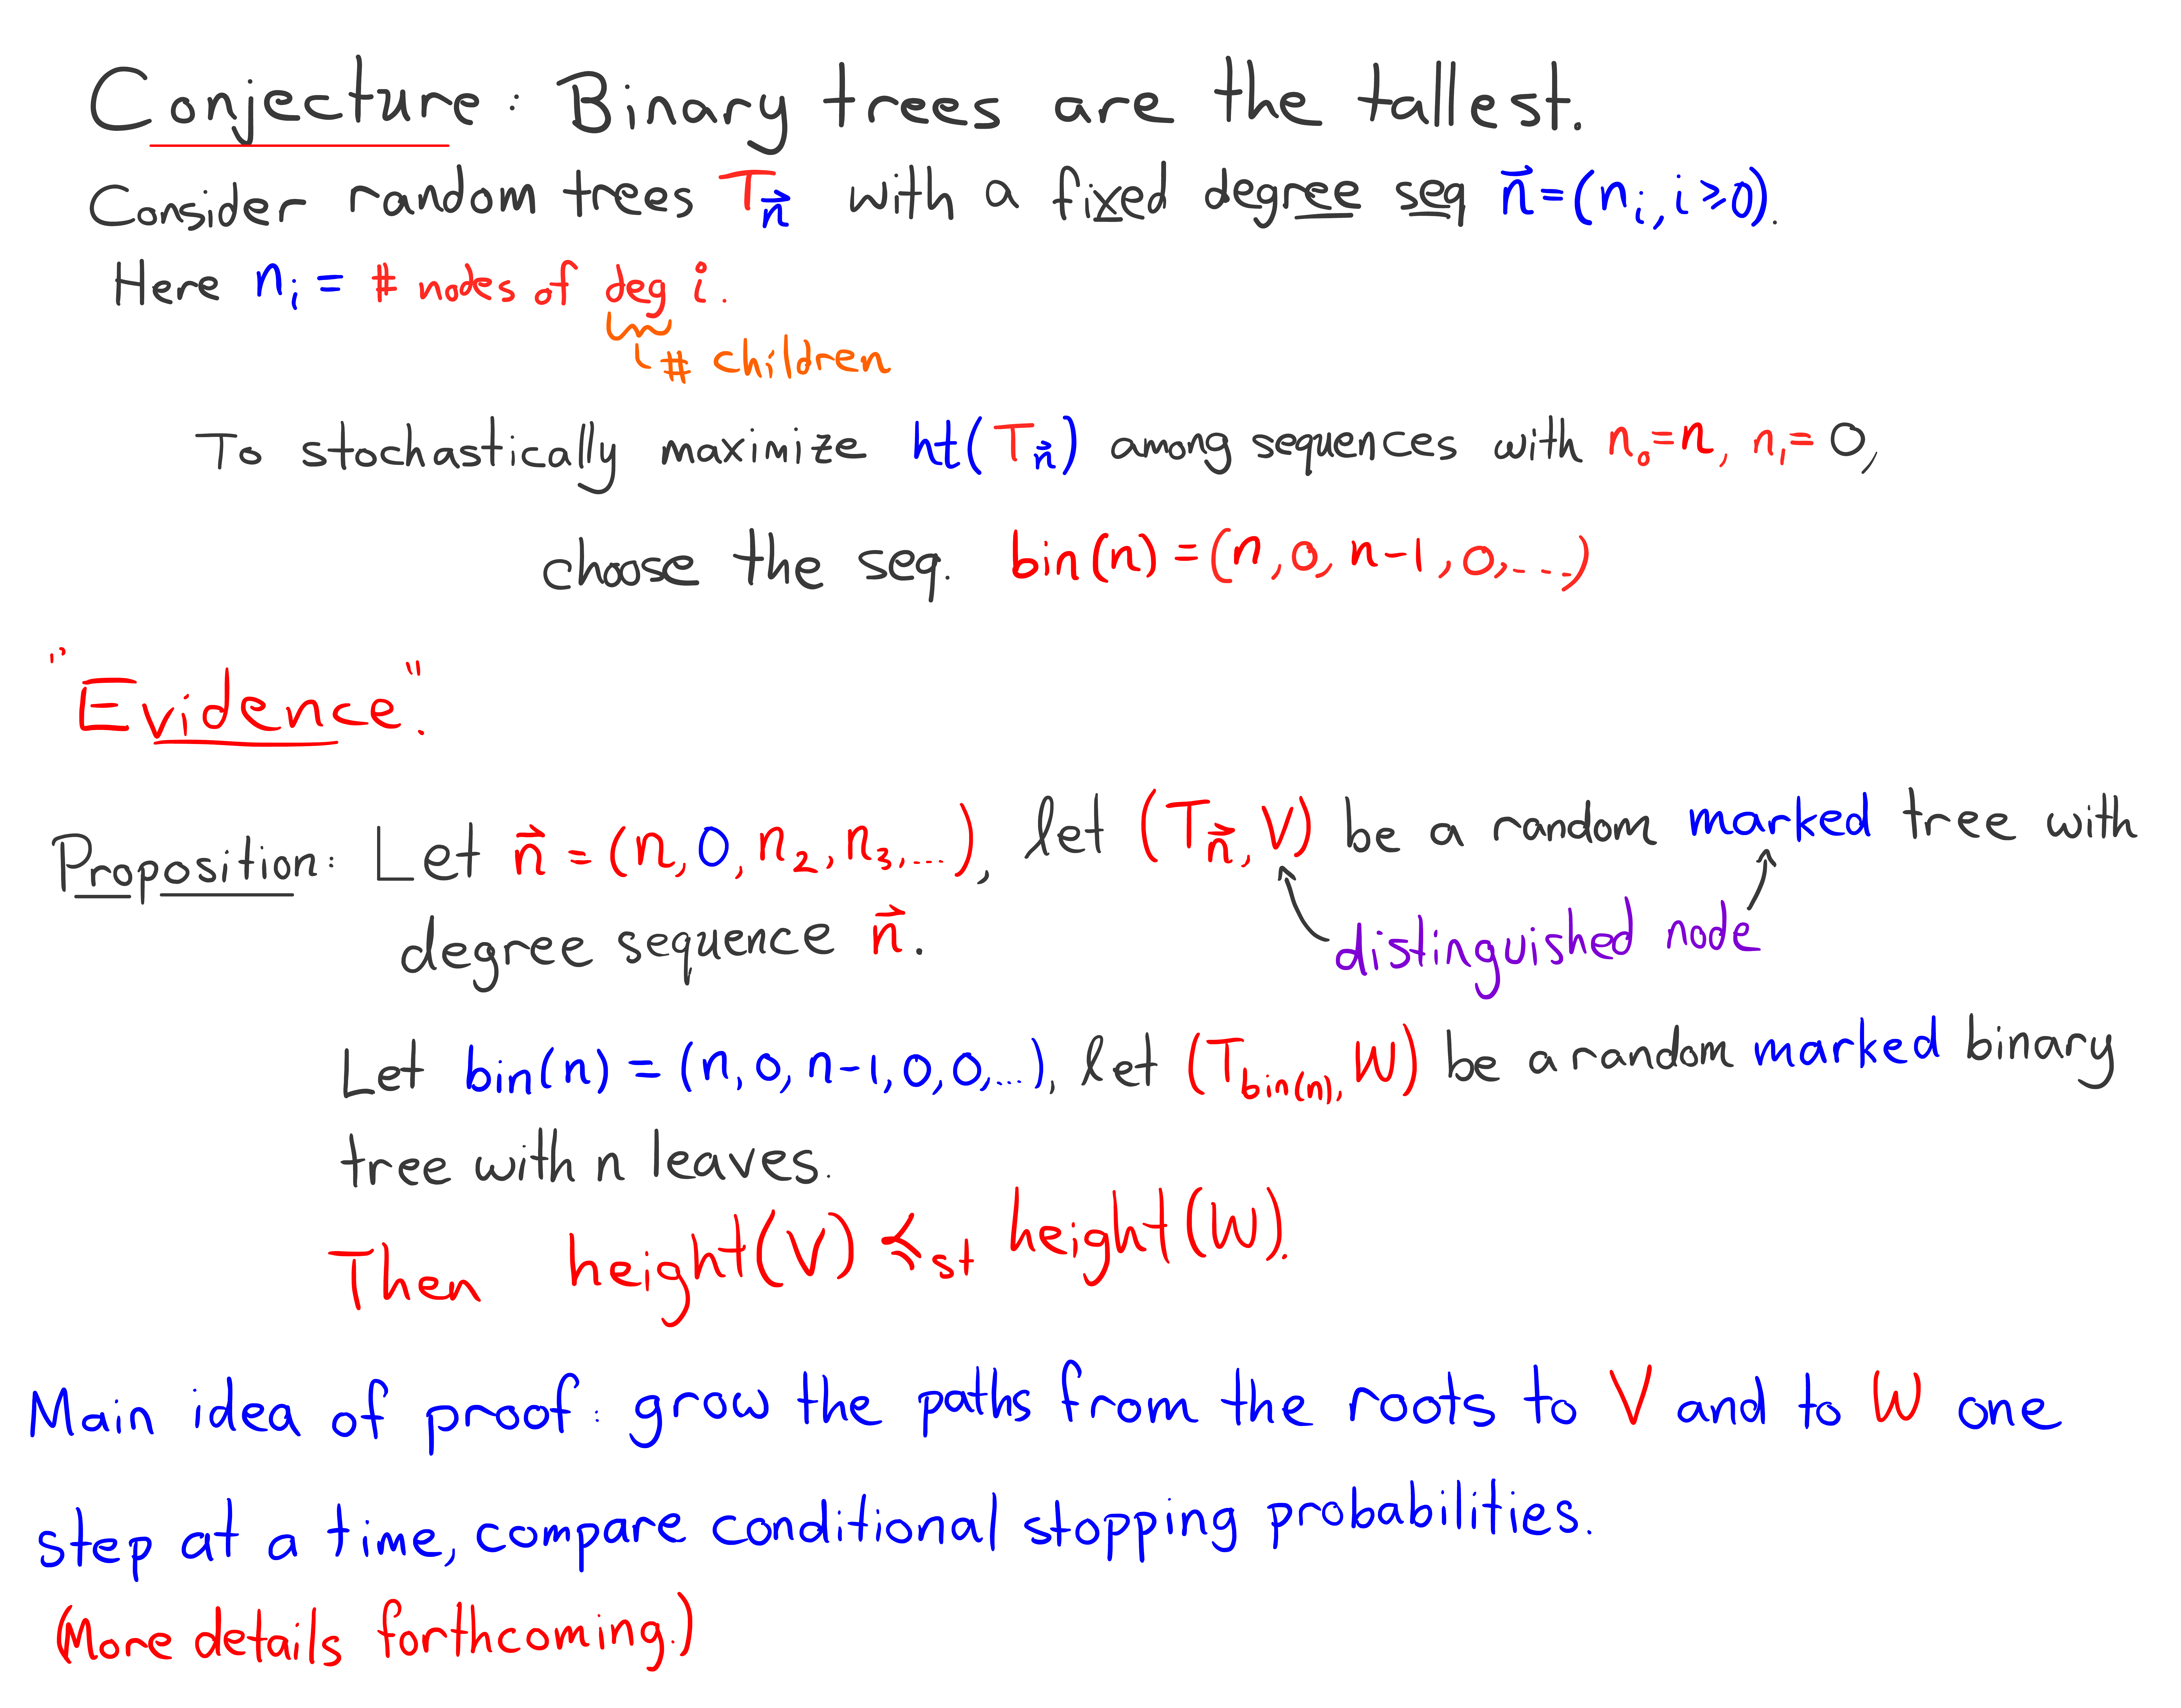 Conjecture: Binary trees are the tallest.
Consider random trees T_n⃗ with a fixed degree seq n⃗ = (n_i, i ≥ 0).
Here n_i = # nodes of deg i.
# children
To stochastically maximize ht(T_n⃗) among sequences with n_0 = n, n_1 = 0,
chose the seq. bin(n) = (n, 0, n-1, 0, ...)
"Evidence".
Proposition: Let n⃗ = (n, 0, n_2, n_3, ...), let (T_n⃗, V) be a random marked tree with
degree sequence n⃗.
distinguished node
Let bin(n) = (n, 0, n-1, 0, 0, ...), let (T_bin(n), W) be a random marked binary
tree with n leaves.
Then height(V) ≼_st height(W).
Main idea of proof: grow the paths from the roots to V and to W one
step at a time, compare conditional stopping probabilities.
(More details forthcoming.)